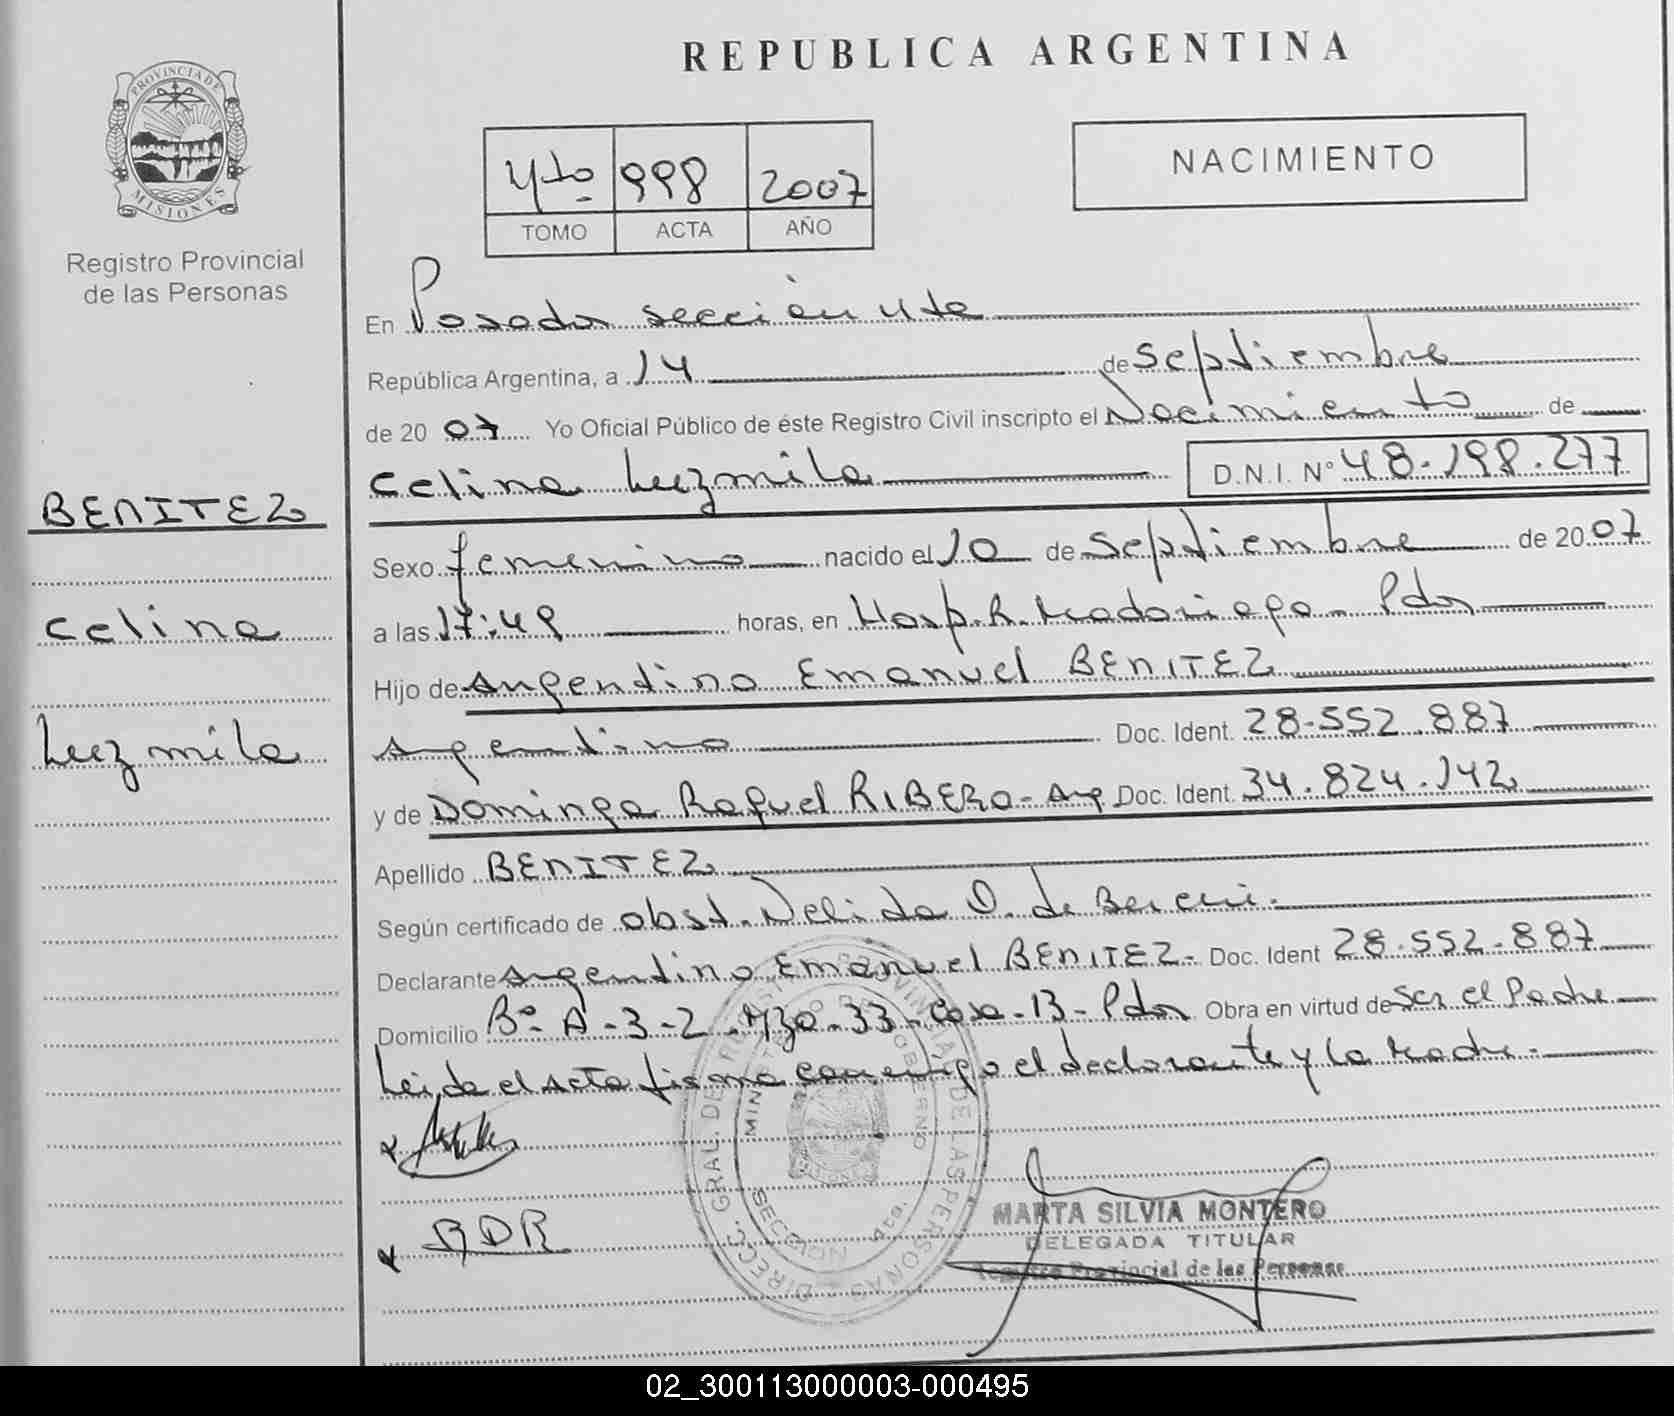 PROVINCIA DE
MISIONES
Registro Provincial
de las Personas
BENITEZ
Celina
Luzmila
REPUBLICA ARGENTINA
4to 998 2007
TOMO ACTA AÑO
NACIMIENTO
En Posadas sección 4ta
República Argentina, a 14 de Septiembre
de 2007 Yo Oficial Público de éste Registro Civil inscripto el Nacimiento de
Celina Luzmila D.N.I. Nº 48.198.277
Sexo femenino nacido el 10 de Septiembre de 2007
a las 17:49 horas, en Hosp. R. Madariaga - Pdas
Hijo de Argentino Emanuel BENITEZ
Argentino Doc. Ident. 28.552.887
y de Dominga Raquel RIBERO - Arg Doc. Ident. 34.824.142
Apellido BENITEZ
Según certificado de obst. Nelida O. de
Declarante Argentino Emanuel BENITEZ - Doc. Ident 28.552.887
Domicilio Bº A-3-2 - Mza - 33 - Casa - 13 - Pdas Obra en virtud de Ser el Padre
Leida el Acta firma conmigo el declarante y la Madre.
RDR
DIRECC. GRAL. DE REGISTRO PROVINCIAL DE LAS PERSONAS
MINISTERIO DE GOBIERNO
SECCION 4ta.
MARTA SILVIA MONTERO
DELEGADA TITULAR
Registro Provincial de las Personas
02_300113000003-000495